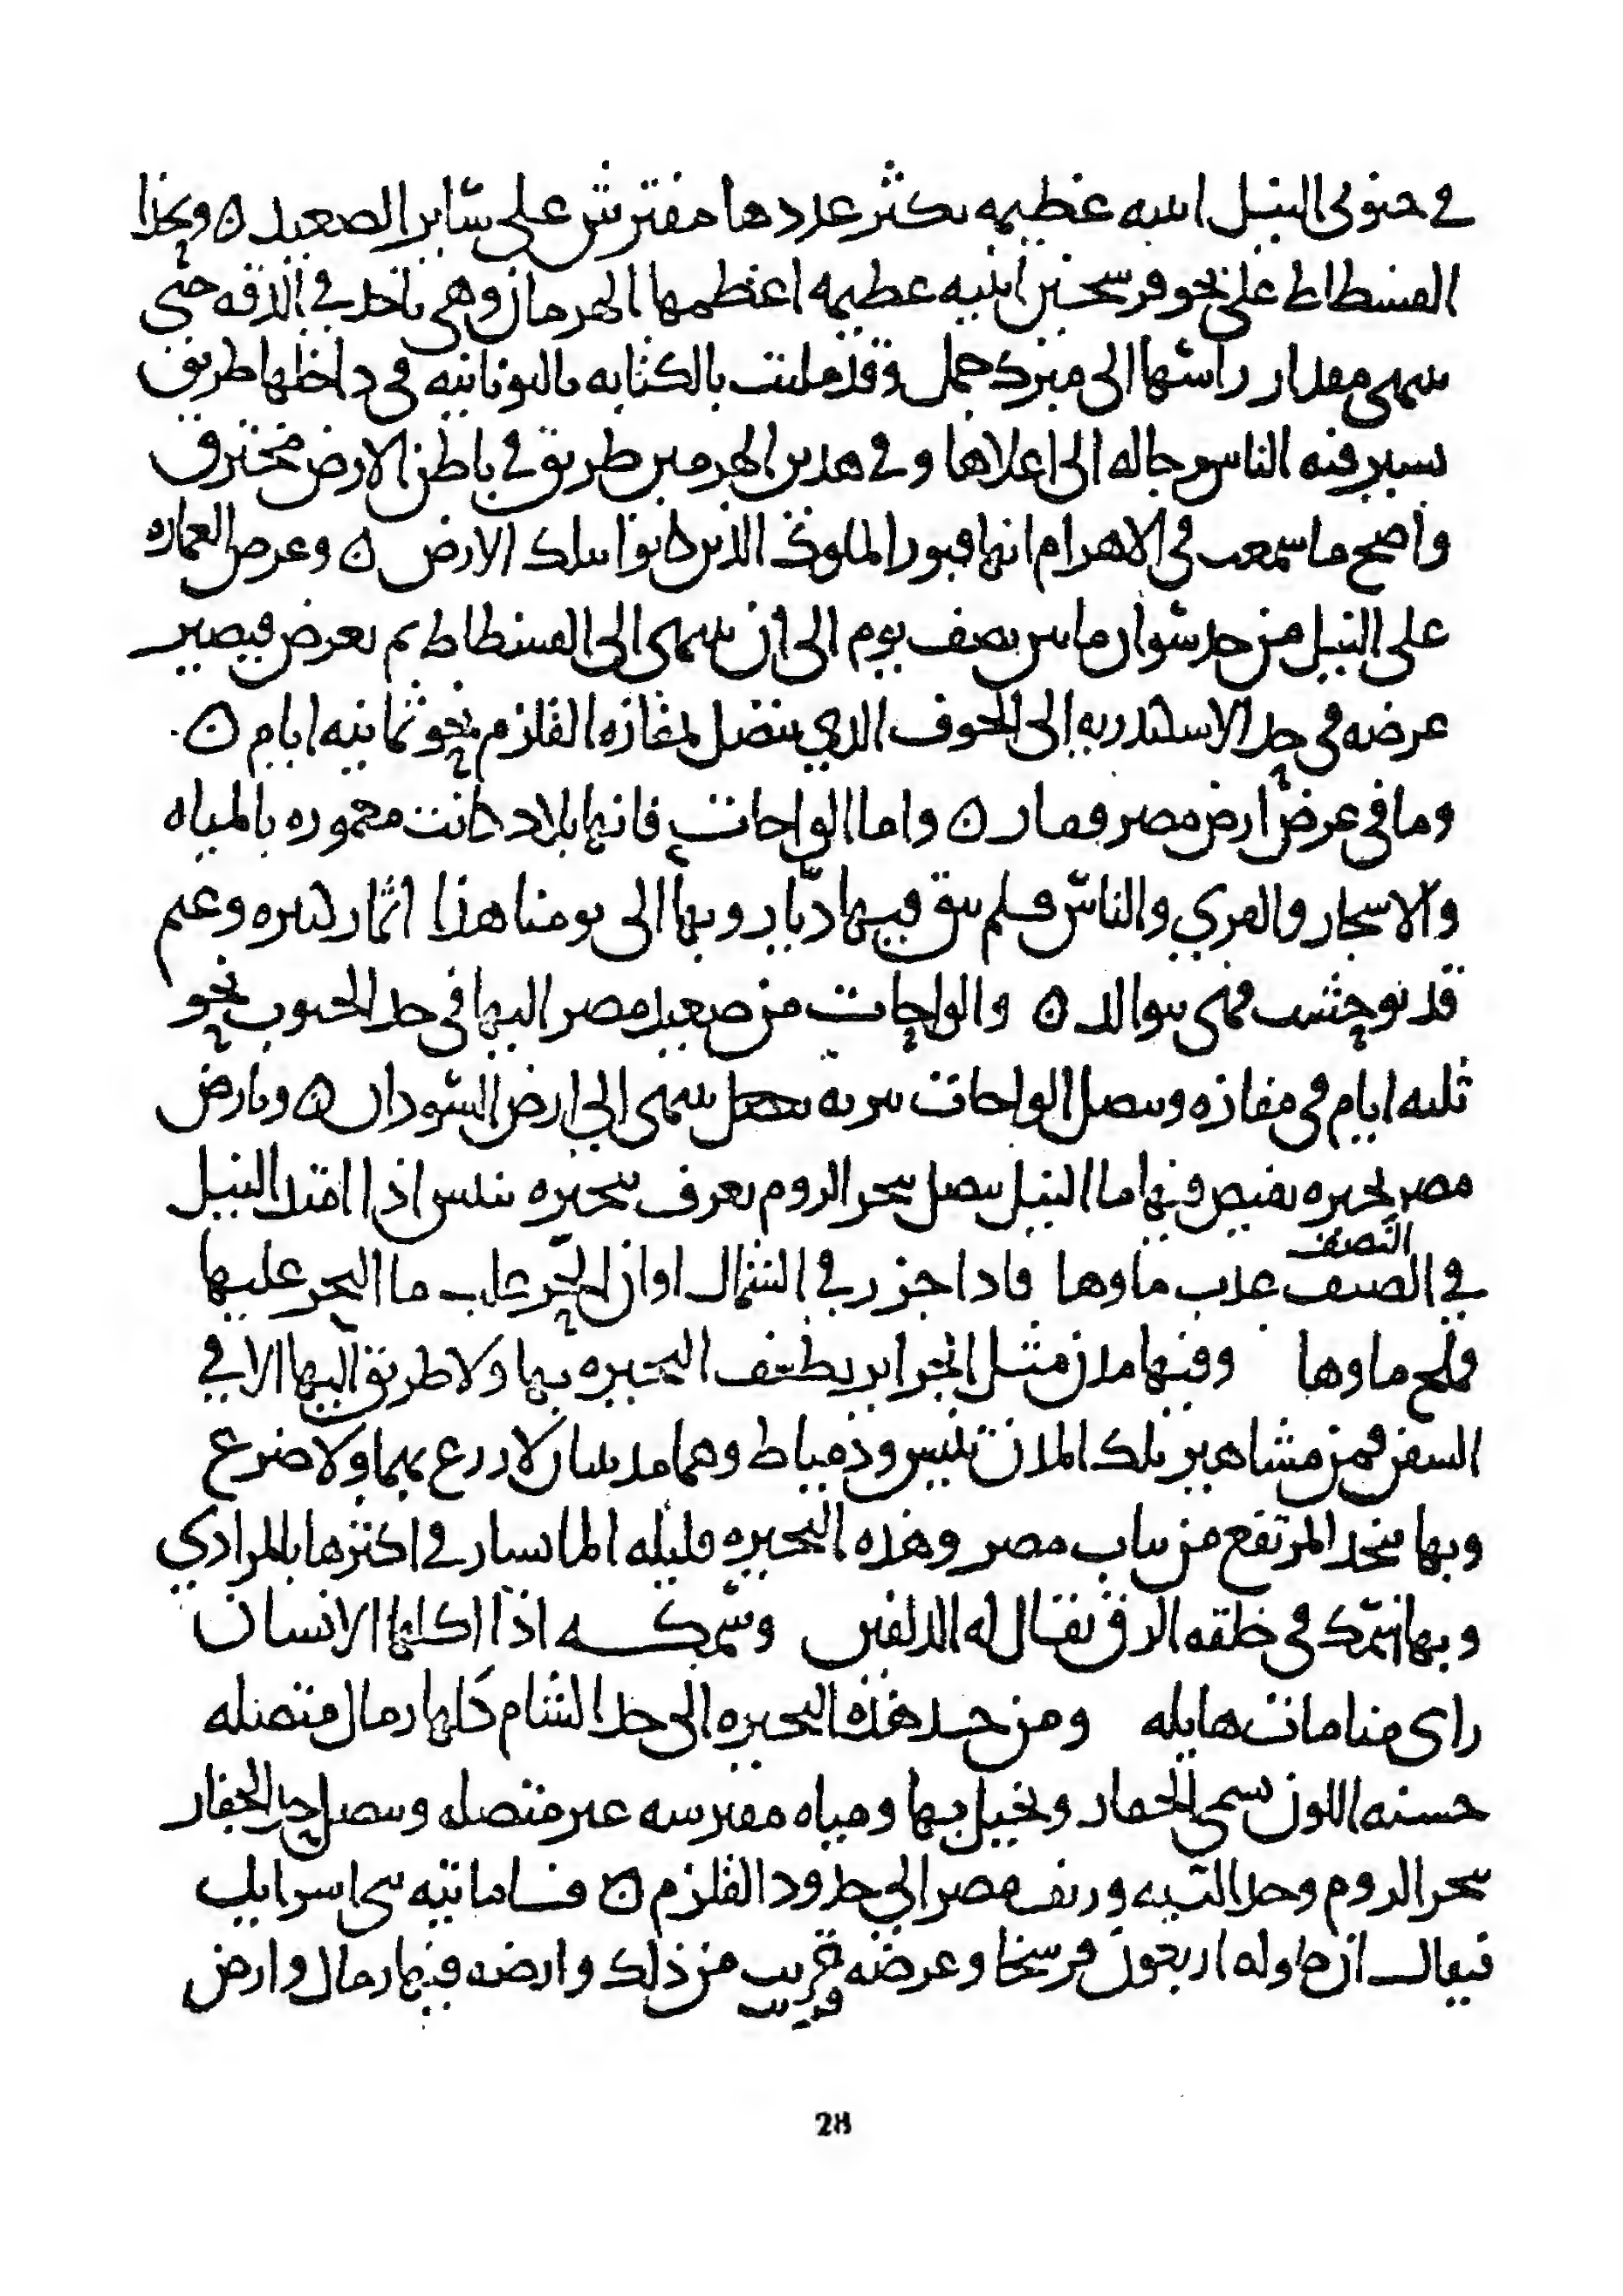 في جنوبي النيل ابنيه عظيمه يكثر عددها مفترش على ساير الصعيد ۞ وبحذا
الفسطاط على نحو فرسخين ابنيه عظيمه اعظمها الهرمان وهي تاخد في الدقه حتى
ينتهي مقدار راسها الى مبرك جمل وقد مليت بالكتابه باليونانيه في داخلها طريق
يسير فيه الناس رجاله الى اعلاها وفي هدين الهرمين طريق في باطن الارض مخترق
واصح ما سمعت في الاهرام انها قبور الملوك الذين كانوا بتلك الارض ۞ وعرض العماره
على النيل من حد سوان ما بين نصف يوم الى ان ينتهي الى الفسطاط ثم يعرض فيصير
عرضه في حد الاسكندريه الى الحوف الذي يتصل بمفازه القلزم نحو ثمانيه ايام ۞
وما في عرض ارض مصر قفار ۞ واما الواحات فانها بلاد كانت معموره بالمياه
والاشجار والقري والناس فلم يبق فيها ديار وبها الى يومنا هذا اثمار كثيره وغنم
قد توحشت فهي تتوالد ۞ والواحات من صعيد مصر اليها في حد الجنوب نحو
ثلثه ايام في مفازه ويتصل الواحات ببريه تتصل ينتهي الى ارض السودان ۞ وبارض
مصر بحيره يفيض فيها ما النيل يتصل ببحر الروم يعرف ببحيره تنيس اذا امتد النيل
النصف
في الصيف عذب ماوها فاذا جزر في الشتا الى اوان الحر غلب ما البحر عليها
فملح ماوها وفيها مدن مثل الجزاير يطيف البحيره بها ولا طريق اليها الا في
السفن فمن مشاهير تلك المدن تنيس ودمياط وهما مدينتان لا زرع بهما ولا ضرع
وبها يتخذ المرتفع من ثياب مصر وهذه البحيره قليله الما يسار في اكثرها بالمرادي
وبها سمك في خلقه الزق يقال له الدلفين وسمكه اذا اكلها الانسان
راى منامات هايله ومن حد هذه البحيره الى حد الشام كلها رمال متصله
حسنه اللون يسمى الجفار ونخيل بها ومياه مفترشه غير متصله ويتصل حد الجفار
ببحر الروم وحد التيه وريف مصر الى حدود القلزم ۞ فاما تيه بني اسرايل
فيقال ان طوله اربعون فرسخا وعرضه قريب من ذلك وارضه فيها رمال وارض
قريب
28